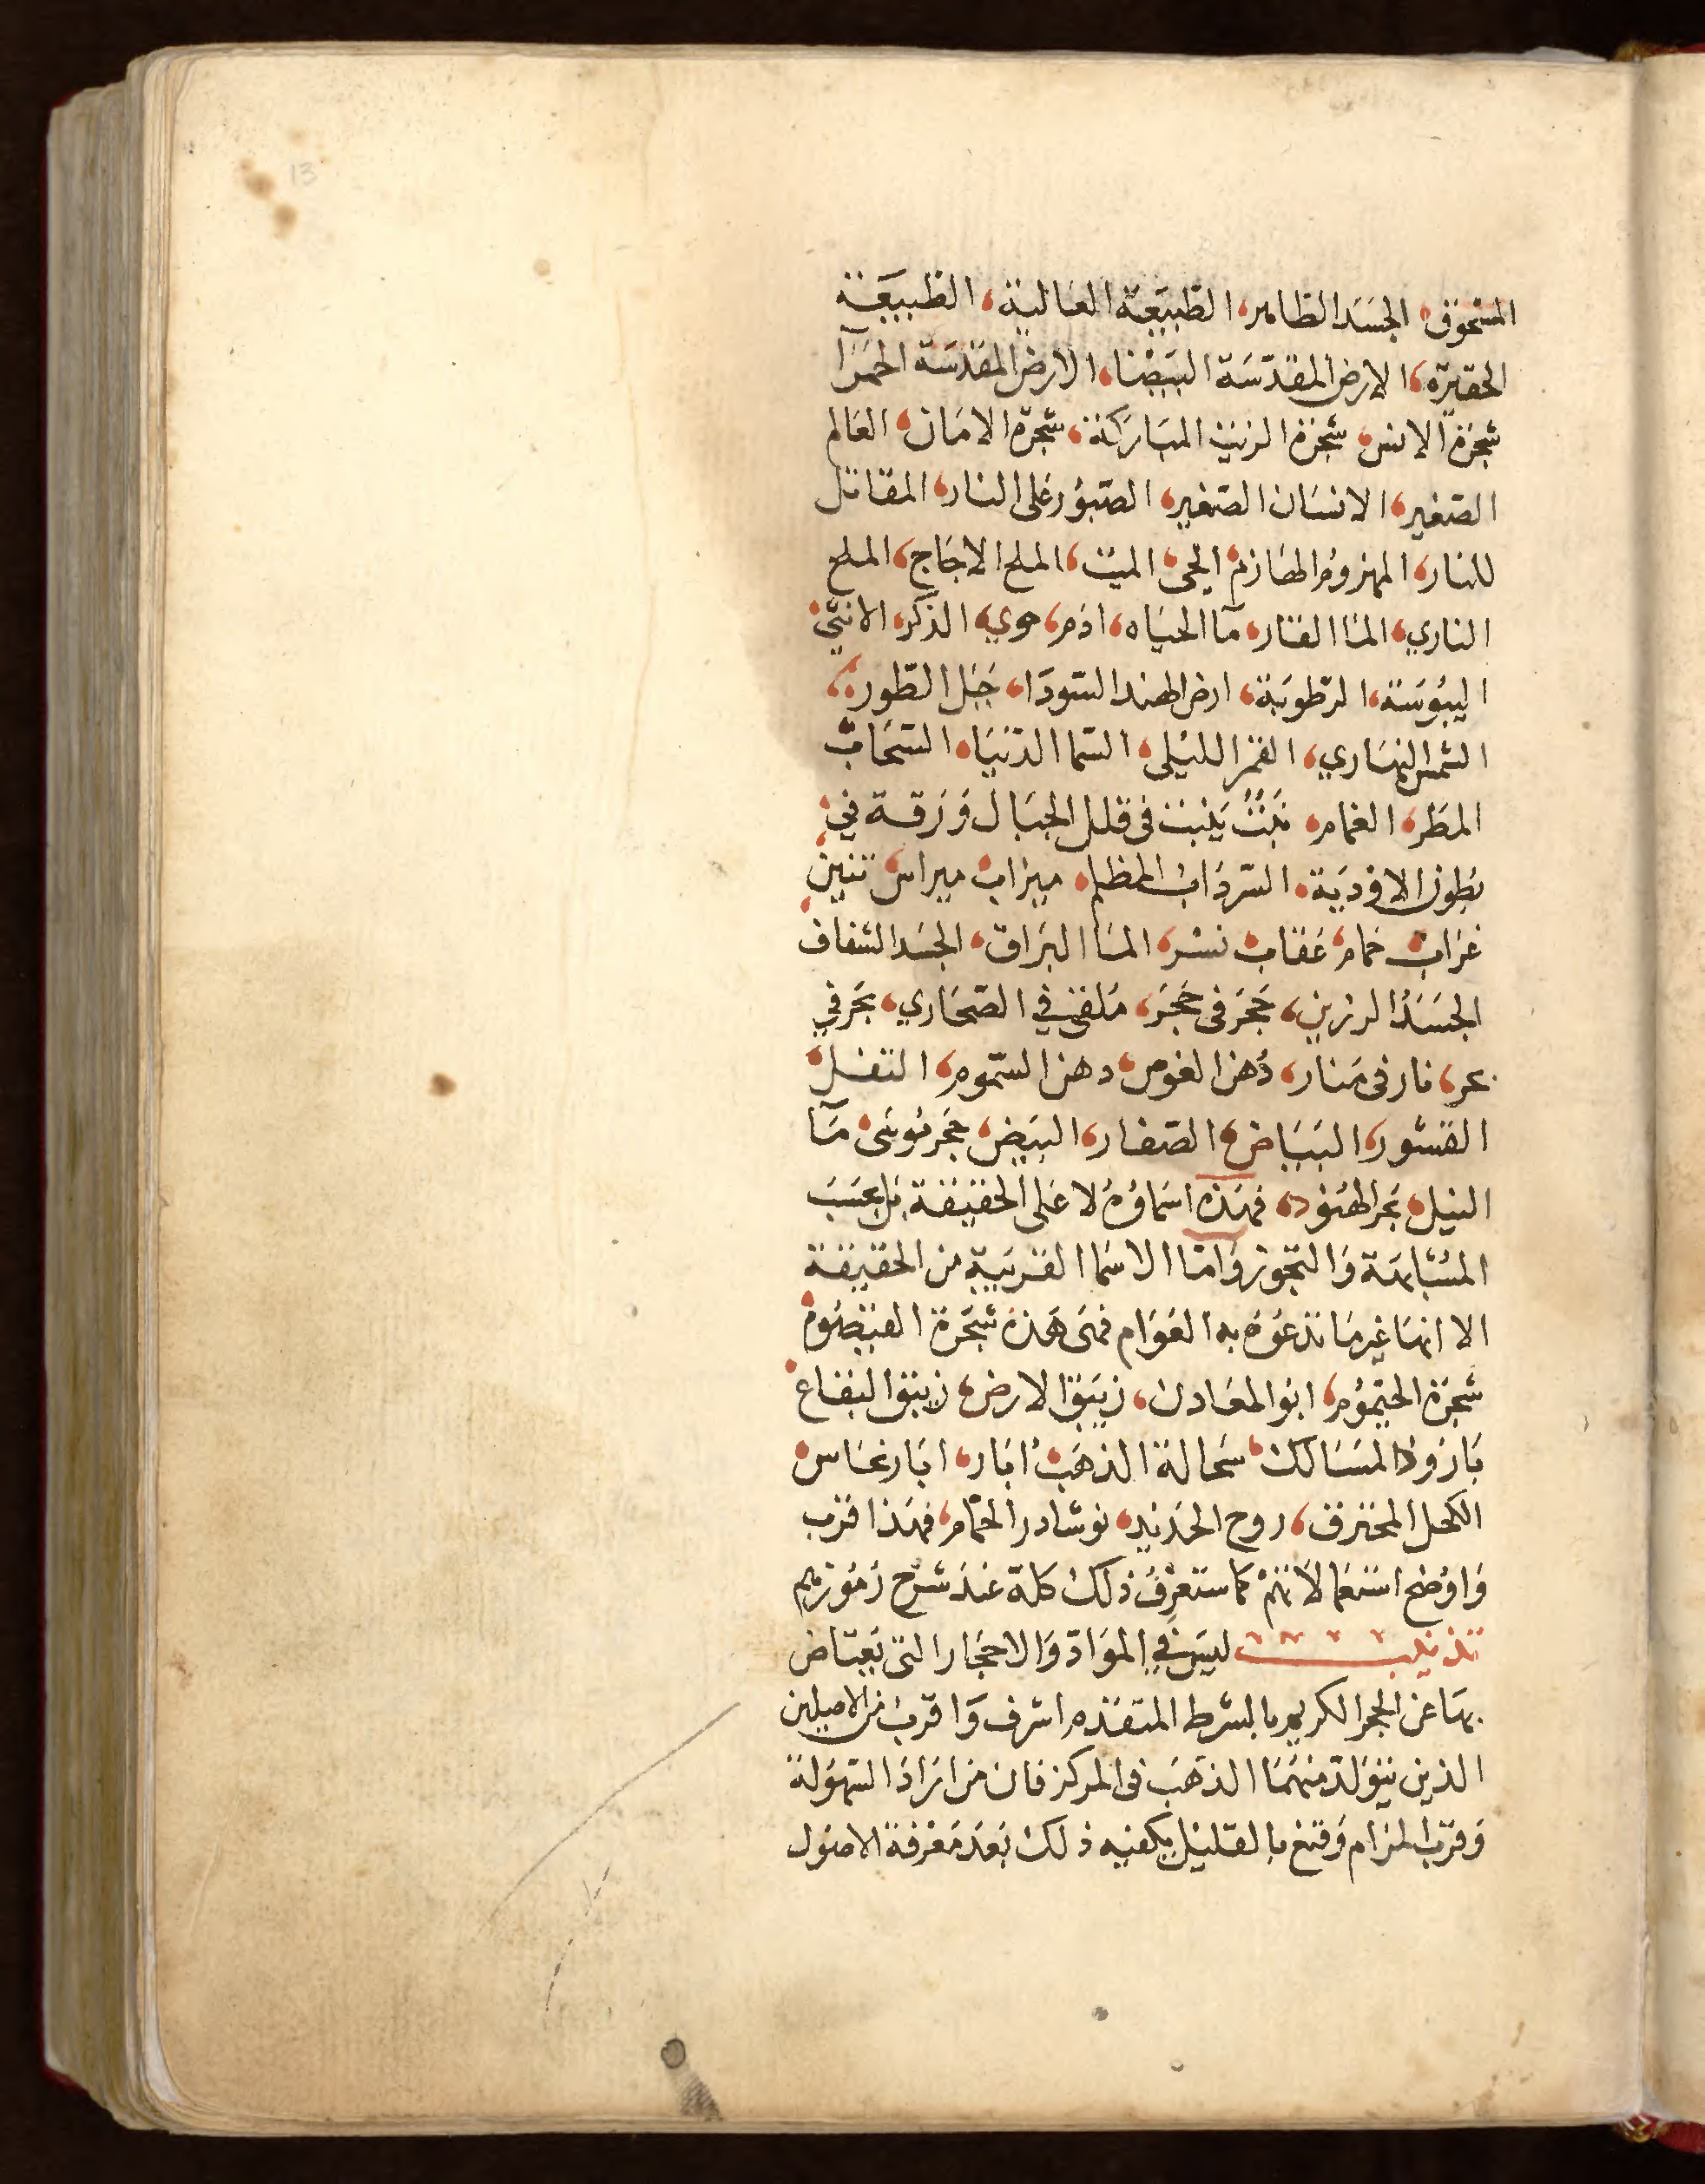 13
المسحوق، الجسَد الظاهر، الطبيعَة العَالية، الطبيعَة
الحقيرَة، الارض المقدّسَة البَيضَا، الارض المقدَّسَة الحمَرآ
شجرَة الانس، شجَرة الزيت المبَاركة، شجَرة الامَان، العَالم
الصّغير، الانسَان الصّغير، الصّبوُر على النار، المقاتل
للنار، المهزوم الهَازم، الحى، الميت، الملح الاجَاج، الملح
الناري، المَا القار، مآ الحيَاه، ادَم، حوي، الذكر، الانثى،
اليبُوسَة، الرّطوبَة، ارض الهند السّودَا، جَبَل الطّور،
الشمس النهَاري، القمَر الليْلى، السّما الدّنيَا، السّحَاب،
المطَر، الغمام، نَبْتُ يَنبت فى قلل الجبَال وَرَقة في
بطون الاوديَة، السّردَاب المظلم، ميزاب، ميراس، تنين،
غرَاب، حَمام، عُقاب، نسْر، المَا البرَاق، الجسَد الشفاف
الجسَدُ الرزين، حَجَر فى حَجَر، مُلقى في الصّحَاري، بحَر في
بحر، نار فى مَنار، دُهن الغوص، دهن السّموم، التفل،
القشور، البَيَاض، الصّفار، البيَض، حَجر مُوسَى، مَآ
النيل، بَحر الهنُود، فهَذه اسَماؤهُ لا عَلى الحقيقة بَل بحسَبَ
المشَابهَة وَالتجّوز وَامّا الاسمَا القريبَة من الحقيقة
الا انهَا غير مَا تدعُوه به العَوَام فهَى هَذه شجَرة القيْصُوم،
شجرَة الحيّموُم، ابُو المعَادن، زيبَق الارض، زيبق البقاع،
بَارُودُ المسَالك، سحَالة الذهَب، ابَار، ابَار نحَاس،
الكحل المحترق، روح الحَديد، نوشادر الحمّام، فهَذا اقرَب
وَاوْضح استعمَالاتهمْ كما ستعْرفُ ذلك كلة عندَ شرْح رُمُوزهم
تذنيب ليسَ في الموَادّ وَالاحجَار التى يَعتاض
بهَا عن الحجر الكريم بالشرط المتقدم اشرف وَاقرَب من الاصلين
الذين يتوَلدّ منهُمَا الذهَب فى المركز فان مَن ارَادَ السّهُولة
وَقرَب المرَام وَقنعَ بالقليْل يكفيه ذلك بَعدَ مَعْرفة الاصُول